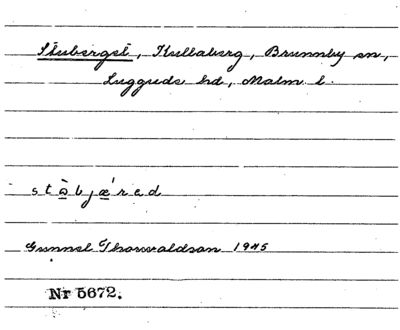 Stuberget, Kullaberg, Brunnby sn,
Luggude hd, Malm. l.
stə̱bjǽ̱rəd
Gunnel Thorvaldson 1945
Nr 5672.